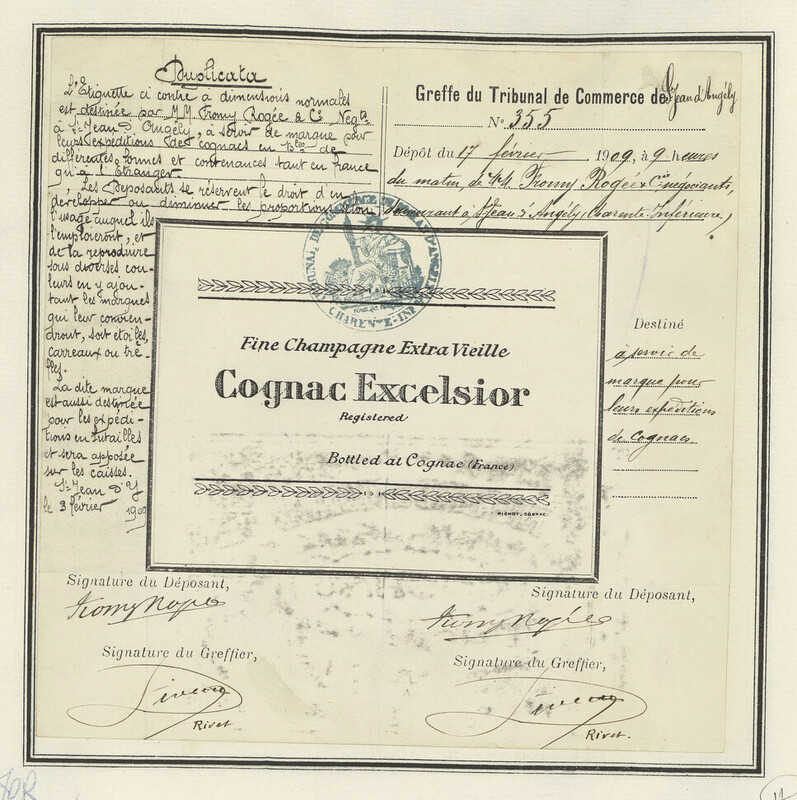 Duplicata
L'Etiquette ci contre à dimensions normales
est destinée par MM Fromy Rogée & Cie Négts
à St Jean d'Angély, à servir de marque pour
leurs expéditions de cognacs en Blles de
différentes formes et contenances tant en france
qu'à l'Etranger.
Les Deposants se réservent le droit d'en
développer ou diminuer les proportions selon
l'usage auquel ils
l'emploieront, et
de la reproduire
sous diverses cou-
leurs en y ajou-
tant les marques
qui leur convien-
dront, soit etoiles,
carreaux ou trè-
fles.
La dite marque
est aussi destinée
pour les expédi-
tions en futailles
et sera apposée
sur les caisses.
St Jean d'Y
le 3 février 1909
Greffe du Tribunal de Commerce de St Jean d'Angély
No 355
Dépôt du 17 février 1909, à 9 heures
du matin de MM. Fromy Rogée & Cie négociants,
demeurant à St Jean d'Angély, (Charente Inférieure)
TRIBUNAL DE COMMERCE DE ST JEAN D'ANGELY
CHARENTE-INF
Fine Champagne Extra Vieille
Cognac Excelsior
Registered
Bottled at Cognac (France)
PICHOT, COGNAC
Destiné
à servir de
marque pour
leurs expéditions
de Cognacs.
Signature du Déposant,
Fromy Rogée
Signature du Greffier,
Rivet
Signature du Déposant,
Fromy Rogée
Signature du Greffier,
Rivet.